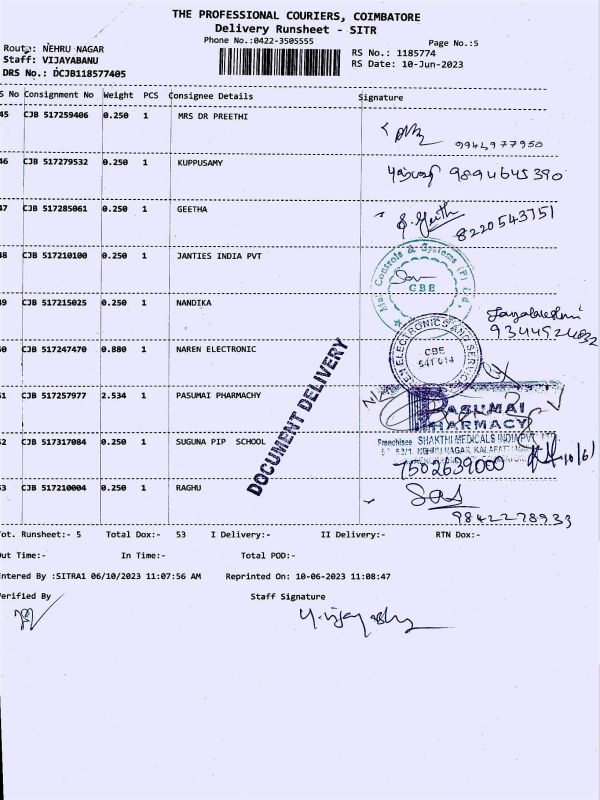 THE PROFESSIONAL COURIERS, COIMBATORE
Delivery Runsheet - SITR
Phone No.:0422-3505555
Page No.:5
Route: NEHRU NAGAR
Staff: VIJAYABANU
DRS No.: DCJB118577405
RS No.: 1185774
RS Date: 10-Jun-2023
S No Consignment No Weight PCS Consignee Details Signature
45 CJB 517259406 0.250 1 MRS DR PREETHI
9944977950
46 CJB 517279532 0.250 1 KUPPUSAMY 9894645390
47 CJB 517285061 0.250 1 GEETHA S. Geetha
8220543751
48 CJB 517210100 0.250 1 JANTIES INDIA PVT
Controls & Systems (P) Ltd.,
CBE
49 CJB 517215025 0.250 1 NANDIKA
9344924832
50 CJB 517247470 0.880 1 NAREN ELECTRONIC
ELECTRONICS AND SERVICE
CBE
641 014
51 CJB 517257977 2.534 1 PASUMAI PHARMACHY
PASUMAI
PHARMACY
Franchisee SHAKTHI MEDICALS INDIA PVT
52 CJB 517317084 0.250 1 SUGUNA PIP SCHOOL
7502639000
53 CJB 517210004 0.250 1 RAGHU
9842278933
DOCUMENT DELIVERY
Tot. Runsheet:- 5 Total Dox:- 53 I Delivery:- II Delivery:- RTN Dox:-
Out Time:- In Time:- Total POD:-
Entered By :SITRA1 06/10/2023 11:07:56 AM Reprinted On: 10-06-2023 11:08:47
Verified By Staff Signature